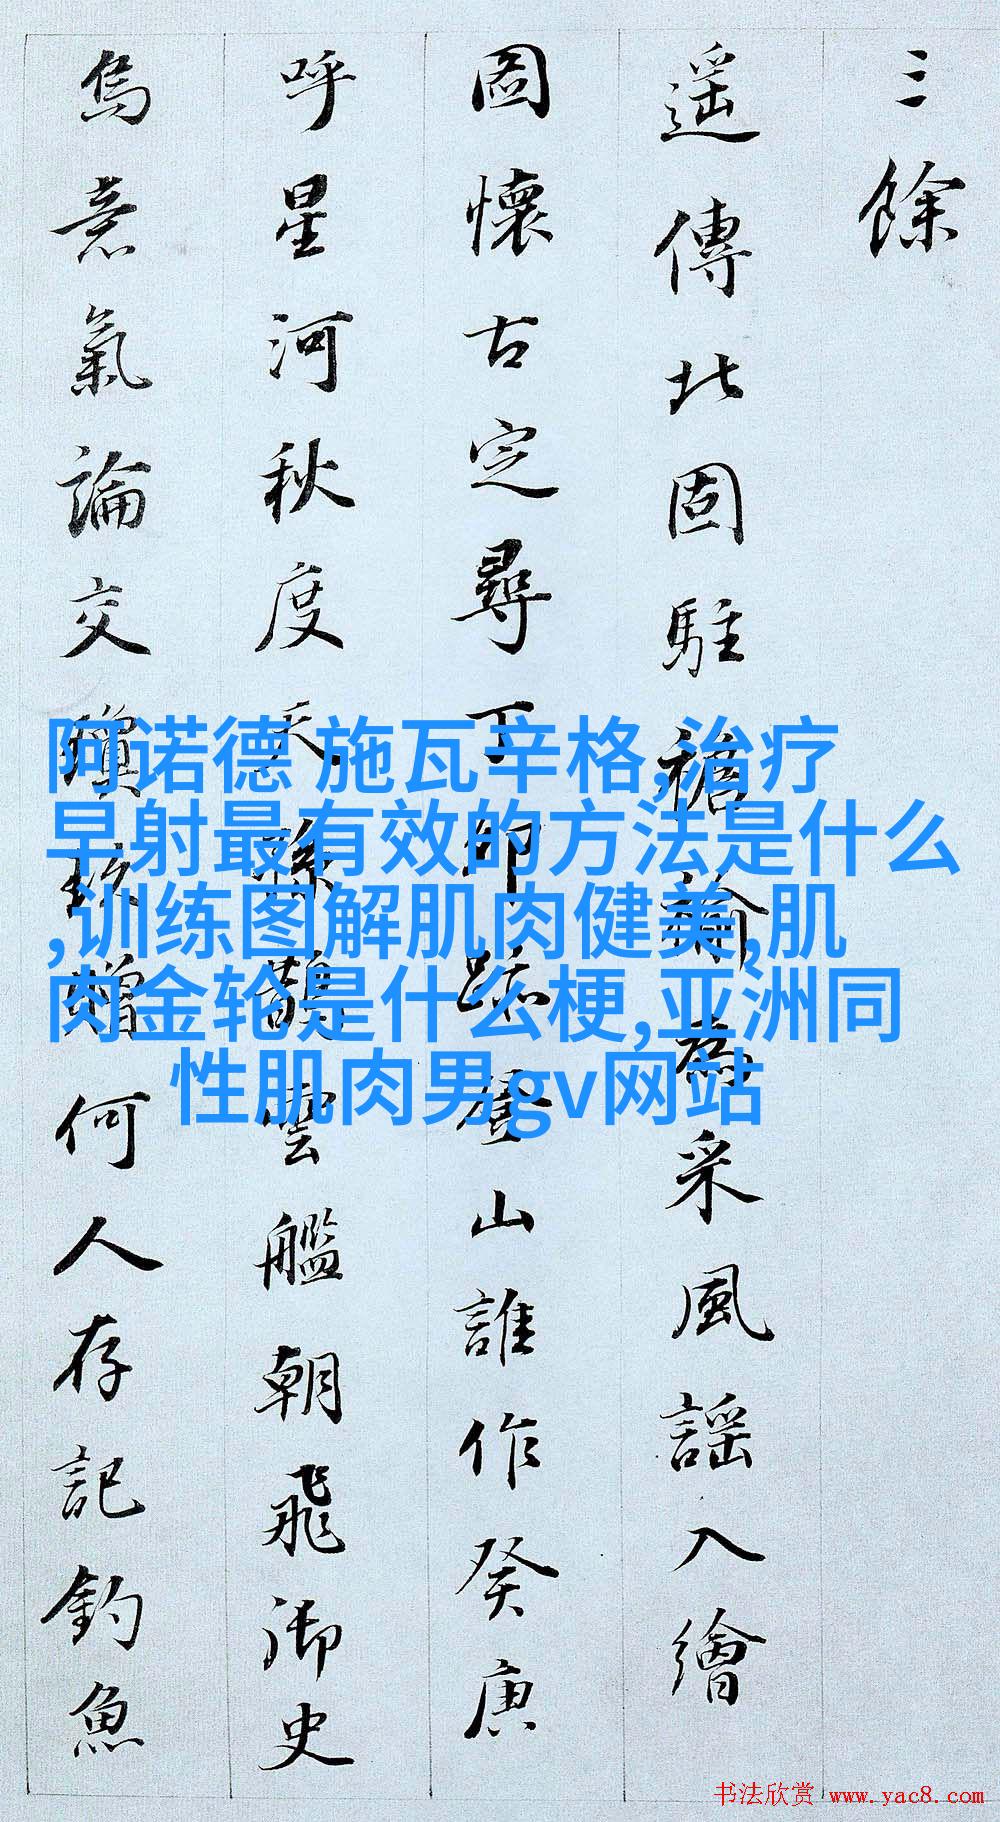 三餘
遥傳北固駐襜褕為采風謡入繪
圖懷古定尋丁卯跡登山誰作癸庚
呼星河秋度天孫鵲雲艦朝飛御史
烏意氣論交瓊玖贈何人存記釣魚
阿诺德 施瓦辛格,治疗
早射最有效的方法是什么
,训练图解肌肉健美,肌
肉金轮是什么梗,亚洲同
性肌肉男gv网站
书法欣赏 www.yac8.com